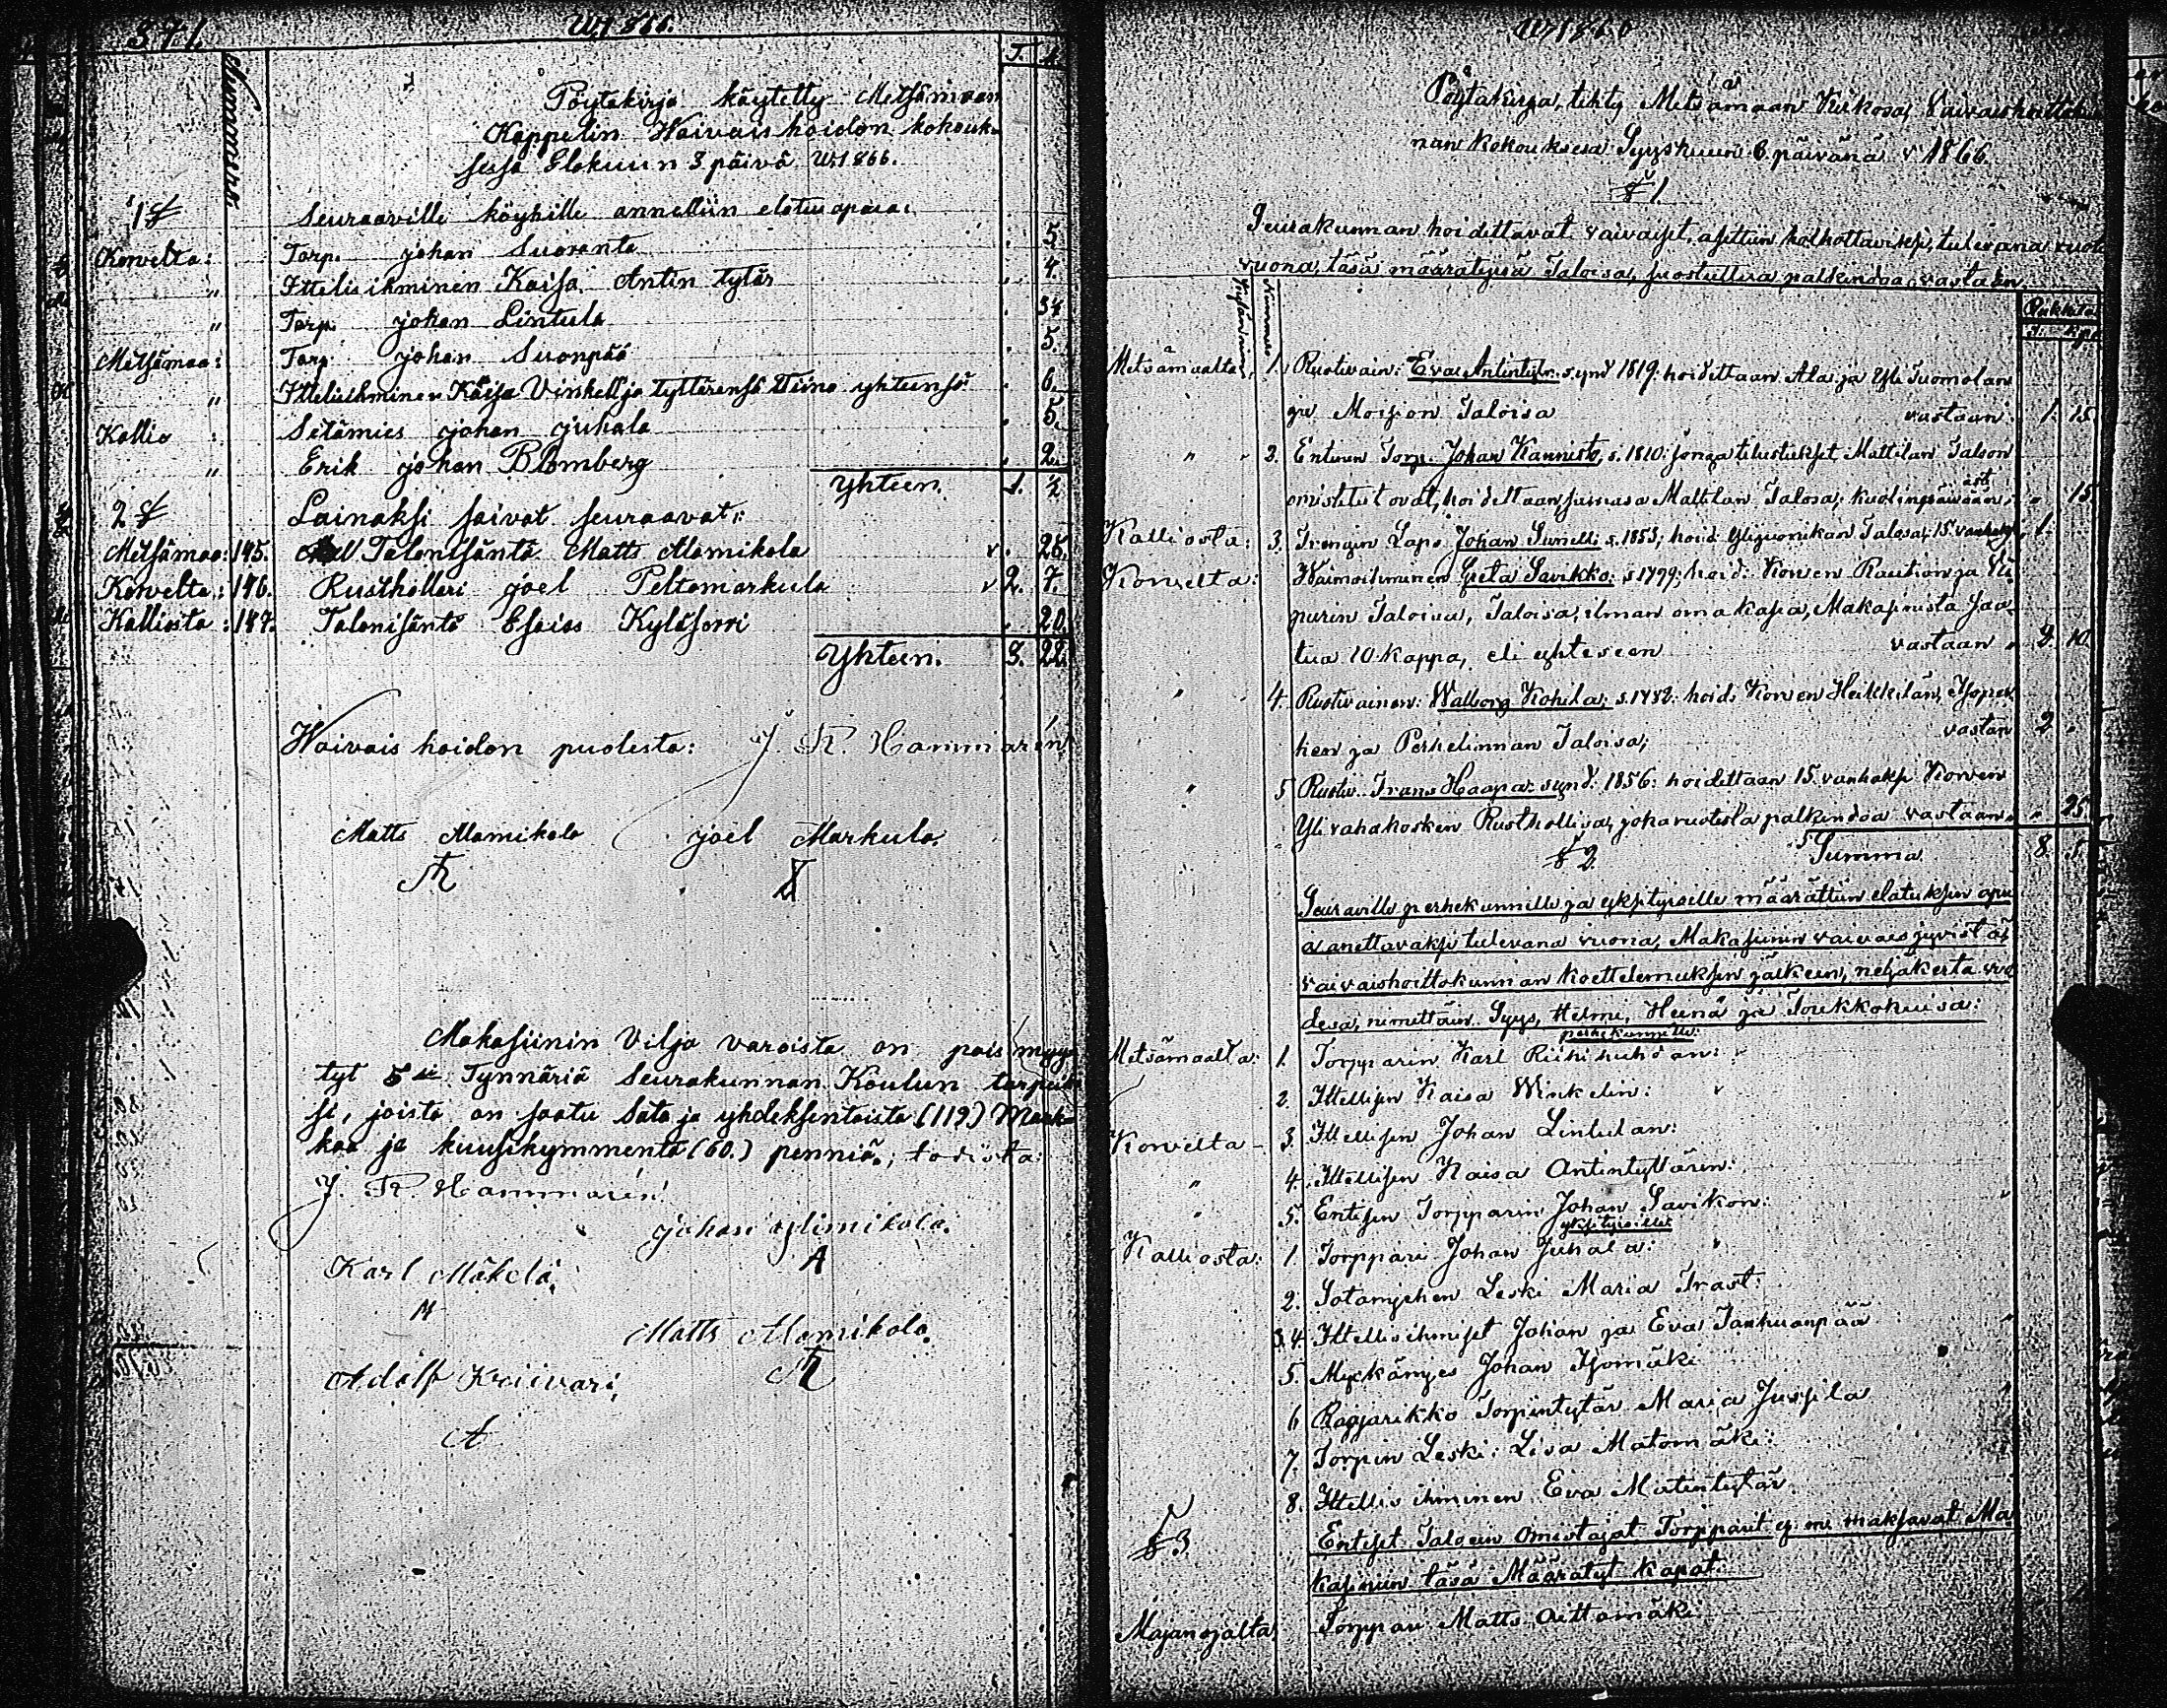 371.
W. 1866.
Nummero
T. K.
Pöytäkirja käytetty Metsämaan
Kappelin Waivaishoidon kokouk-
sesa Elokuun 3 päivä W. 1866.
1 §
Seuraaville köyhille annettiin elatus apua:
Korvelta: Torp. johan Suoranta 5.
" Ittelis ihminen Kaisa Antin tytär 4.
" Torp. johan Lintula
Metsämaa: Torp. johan Suonpää 5.
" Ittelisihminen Kaisa Vinkell ja tyttärensä Tiina yhteensä 6.
Kallio: Sotamies johan juhala 5.
" Erik johan Blomberg 2.
Yhteen. 1. 2
2 § Lainaksi saivat seuraavat:
Metsämaa: 145. Talonisäntä Matts Alamikola 25.
Korvelta: 146. Rusthollari joel Peltomarkula 2. 7.
Kalliosta: 147. Talonisäntä Esaias Kyläsorri 20.
Yhteen. 3. 22.
Waivais hoidon puolesta: J. R. Hammarén
Matts Alamikola joel Markula.
Makasiinin Vilja varoista on pois myy-
tyt 5 Tynnäriä Seurakunnan Koulun tarpeik-
si, joista on saatu Sata ja yhdeksentoista (119) Mark-
kaa ja kuusikymmentä (60.) penniä; todista:
J. R. Hammarén
johan ylimikola.
A
Karl Mäkelä.
M
Matts Alamikola.
Adolf Kriivari,
A
W 1866
Pöytäkirja, tehty Metsämaan Kirkosa, Vaivaishoittokun-
nan Kokouksesa Syyskuun 6. päivänä v 1866.
§ 1.
Seurakunnan hoidettavat vaivaiset, asettiin holhottaviksi, tulevana vuote
vuona, täsä määrätyisä Taloisa, suostuttua palkindoa vastaan.
Nummero
Metsämaalta, 1. Ruotivain: Eva Antintytr. synd 1819: hoidettaan Ala ja Yli Tuomolan
ja Moision Taloisa vastaan: 1. 15.
" 2. Entinen Torp. Johan Kannisto, s. 1810: jonga tilustukset Mattilan Taloon
omistetut ovat, hoidettaan samasa Mattilan Talosa, kuolinpäivään asti " 15.
Kalliosta: 3. Trengin Laps Johan Sunelli s. 1853; hoid. Ylijuonikan Talosa, 15. vanhaksi 1.
Korvelta: Waimoihminen Greta Savikko: s 1799; hoid: Korven Raution ja Vii
purin Taloisa, Taloisa, ilman omakasia, Makasinista saa
tua 10 kappa, eli yhteseen vastaan 2. 10.
" 4. Ruotivainen: Walborg Kohila; s. 1782: hoid: Korven Heikkilän,
hen ja Perhelinnan Taloisa; vastan 2 "
" 5 Ruotiv. Frans Haapa synd: 1856: hoidettaan 15. vanhaksi Korven
Yli vahakosken Rusthollisa, joka ruotista palkindoa vastaan " 25.
§ 2. Summa 8. 5
Seuraaville perhekunnille ja yksityisille määrättiin elatuksen apu
a anettavaksi tulevana vuona, Makasinin vaivaisjyvistä,
vaivaishoittokunnan koettelemuksen jälkeen, neljäkerta vuo
desa, nimittäin Syys, Helmi, Heinä ja Toukkokuusa:
perhekunnille:
Metsämaalta: 1. Torpparin Karl Riihihuhdan:
2. Ittellisen Kaisa Winkelin:
Korvelta - 3. Ittellisen Johan Lintulan:
" 4. Ittellisen Kaisa Antintyttären:
" 5. Entisen Torpparin Johan Savikon:
yksityisille:
Kalliosta: 1. Torppari Johan Juhala:
2. Sotamjehen Leski Maria Trast:
3.4. Ittellisihmiset Johan ja Eva Tanhuanpää
5. Myckämjes Johan Isomäki
6 Torpintytär Maria Jussila
7. Torpin Leski: Lisa Matomäki:
8. Ittellis ihminen Eva Matintytär.
§ 3 Entiset Taloin Omistajat Torpparit ej ne maksavat Ma
kasiniin täsä Määrätyt kapat:
Majanojalta Torppari Matts Aittamäki